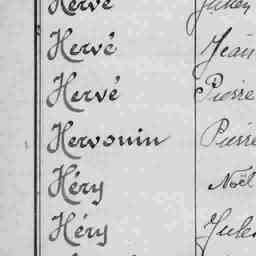 Hervé Julien
Hervé Jean
Hervé Pierre
Hervouin Pierre
Héry Noël
Héry Jules